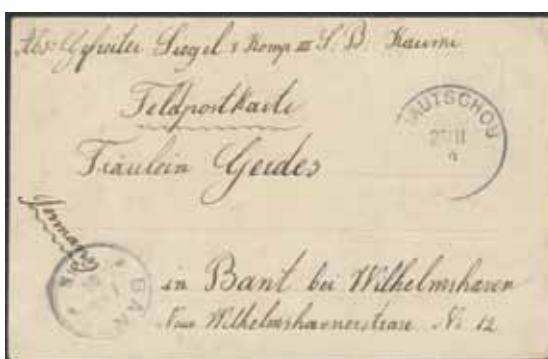 Abs. Gefreiter Siegel 1 Komp III S. B. Kaumi
Feldpostkarte
TAUTSCHOU
Fräulein Gerdes
Germany
BAN
in Bant bei Wilhelmshaven
Neue Wilhelmshavenerstrase No 12